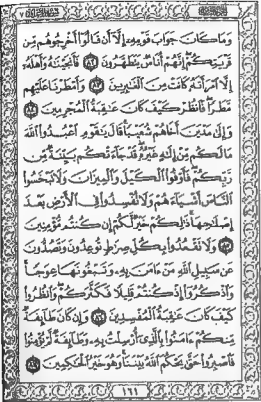 وَمَا كَانَ جَوَابَ قَوْمِهِ إِلَّا أَن قَالُوا أَخْرِجُوهُم مِّن
قَرْيَتِكُمْ إِنَّهُمْ أُنَاسٌ يَتَطَهَّرُونَ ٨٢ فَأَنجَيْنَاهُ وَأَهْلَهُ
إِلَّا امْرَأَتَهُ كَانَتْ مِنَ الْغَابِرِينَ ٨٣ وَأَمْطَرْنَا عَلَيْهِم
مَّطَرًا فَانظُرْ كَيْفَ كَانَ عَاقِبَةُ الْمُجْرِمِينَ ٨٤
وَإِلَىٰ مَدْيَنَ أَخَاهُمْ شُعَيْبًا قَالَ يَا قَوْمِ اعْبُدُوا اللَّهَ
مَا لَكُم مِّنْ إِلَٰهٍ غَيْرُهُ قَدْ جَاءَتْكُم بَيِّنَةٌ مِّن
رَّبِّكُمْ فَأَوْفُوا الْكَيْلَ وَالْمِيزَانَ وَلَا تَبْخَسُوا
النَّاسَ أَشْيَاءَهُمْ وَلَا تُفْسِدُوا فِي الْأَرْضِ بَعْدَ
إِصْلَاحِهَا ذَٰلِكُمْ خَيْرٌ لَّكُمْ إِن كُنتُم مُّؤْمِنِينَ
٨٥ وَلَا تَقْعُدُوا بِكُلِّ صِرَاطٍ تُوعِدُونَ وَتَصُدُّونَ
عَن سَبِيلِ اللَّهِ مَنْ آمَنَ بِهِ وَتَبْغُونَهَا عِوَجًا
وَاذْكُرُوا إِذْ كُنتُمْ قَلِيلًا فَكَثَّرَكُمْ وَانظُرُوا
كَيْفَ كَانَ عَاقِبَةُ الْمُفْسِدِينَ ٨٦ وَإِن كَانَ طَائِفَةٌ
مِّنكُمْ آمَنُوا بِالَّذِي أُرْسِلْتُ بِهِ وَطَائِفَةٌ لَّمْ يُؤْمِنُوا
فَاصْبِرُوا حَتَّىٰ يَحْكُمَ اللَّهُ بَيْنَنَا وَهُوَ خَيْرُ الْحَاكِمِينَ ٨٧
١٦١